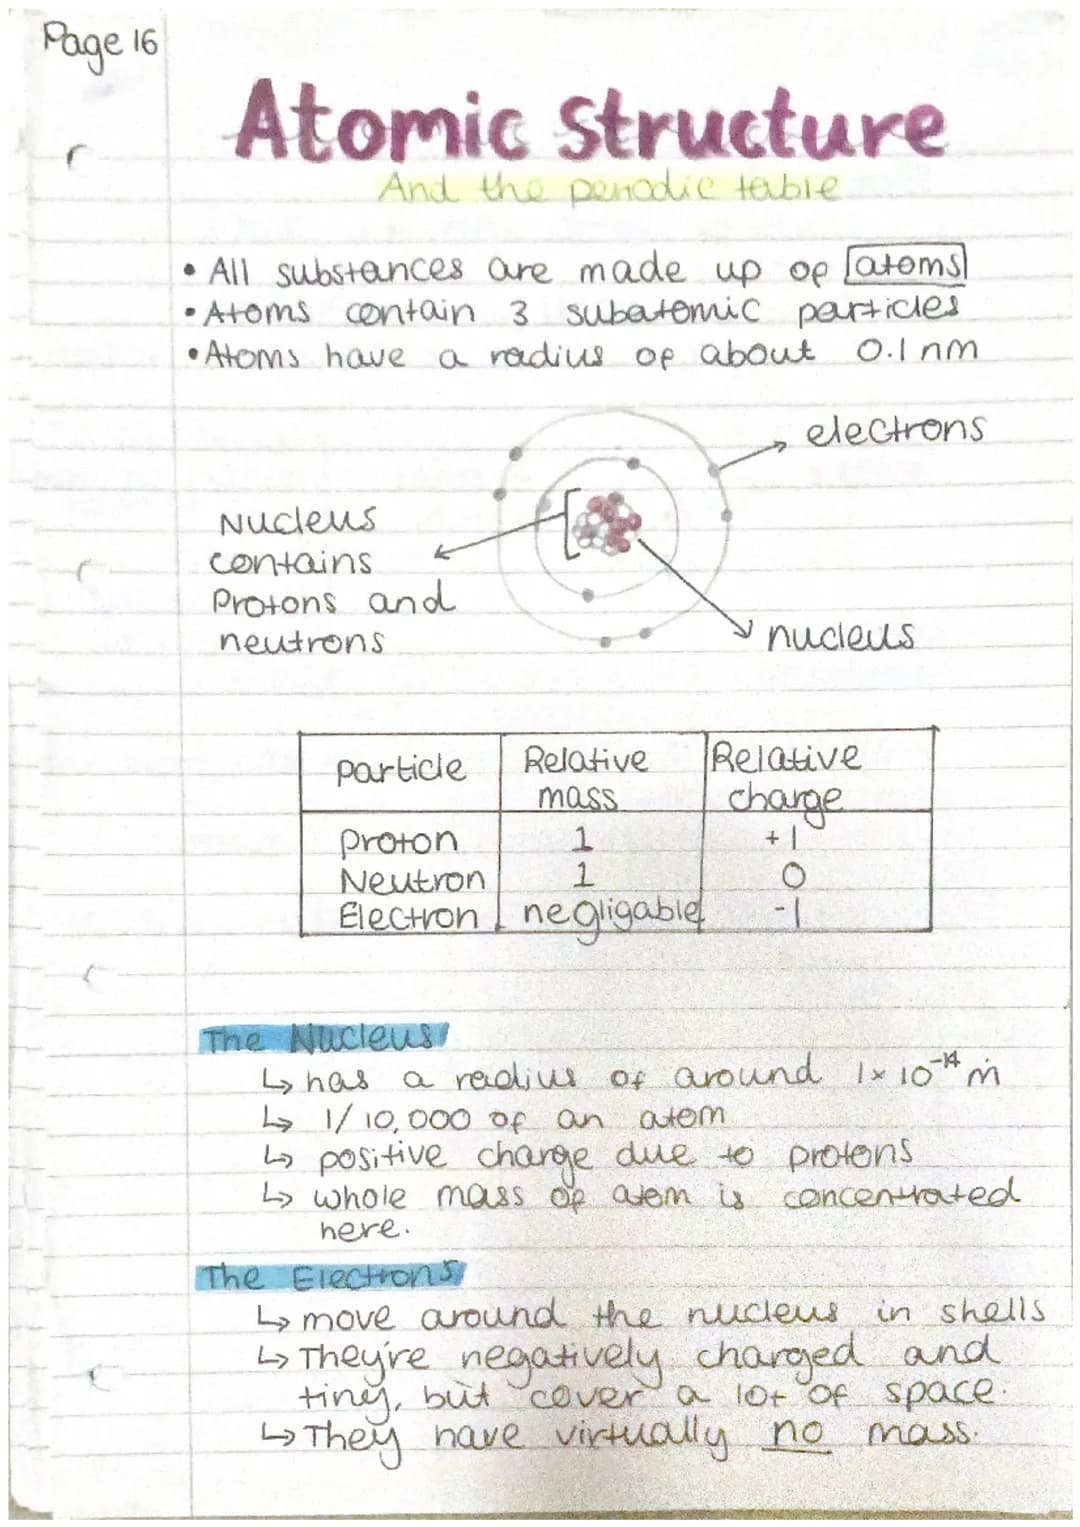 Page 16
Atomic structure
And the periodic table
• All substances are made up of atoms
• Atoms contain 3 subatomic particles
• Atoms have a radius of about 0.1 nm
electrons
Nucleus
contains
Protons and
neutrons
nucleus
particle Relative mass Relative charge
proton 1 +1
Neutron 1 0
Electron negligable -1
The Nucleus
↳ has a radius of around 1×10⁻¹⁴ m
↳ 1/10,000 of an atom
↳ positive charge due to protons
↳ whole mass of atom is concentrated
here.
The Electrons
↳ move around the nucleus in shells
↳ They're negatively charged and
tiny, but cover a lot of space.
↳ They have virtually no mass.